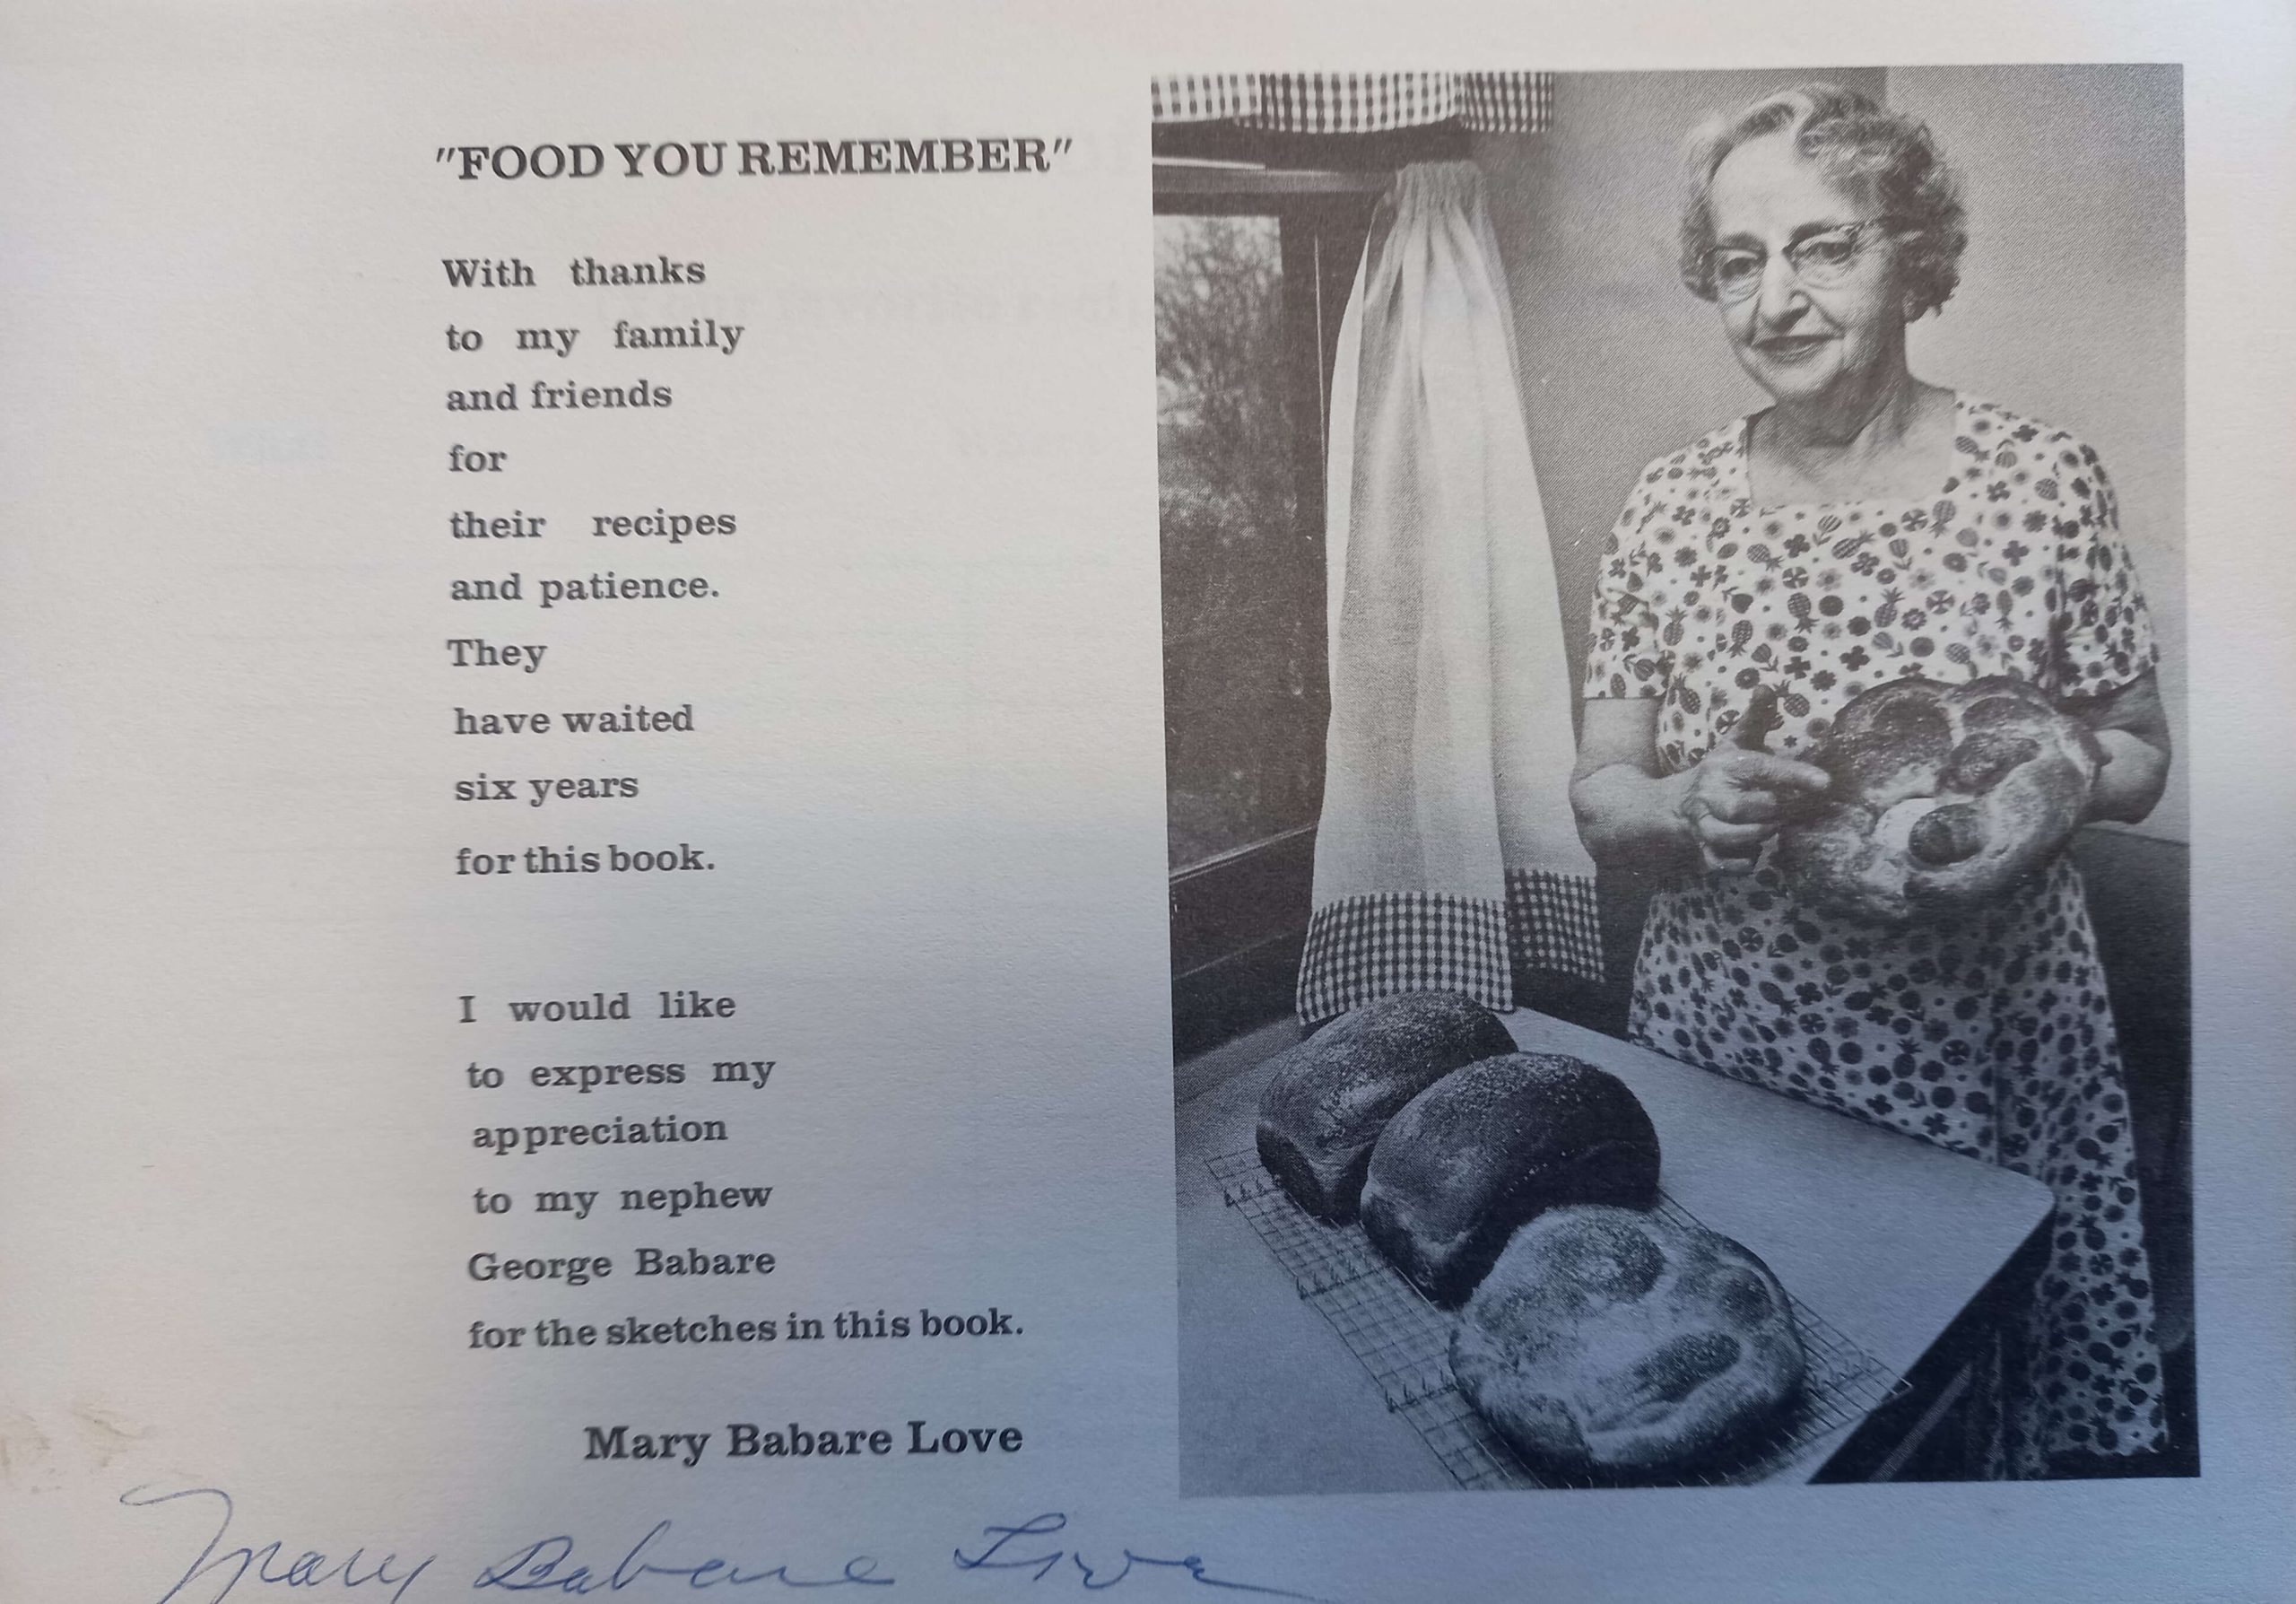 "FOOD YOU REMEMBER"
With thanks
to my family
and friends
for
their recipes
and patience.
They
have waited
six years
for this book.
I would like
to express my
appreciation
to my nephew
George Babare
for the sketches in this book.
Mary Babare Love
Mary Babare Love